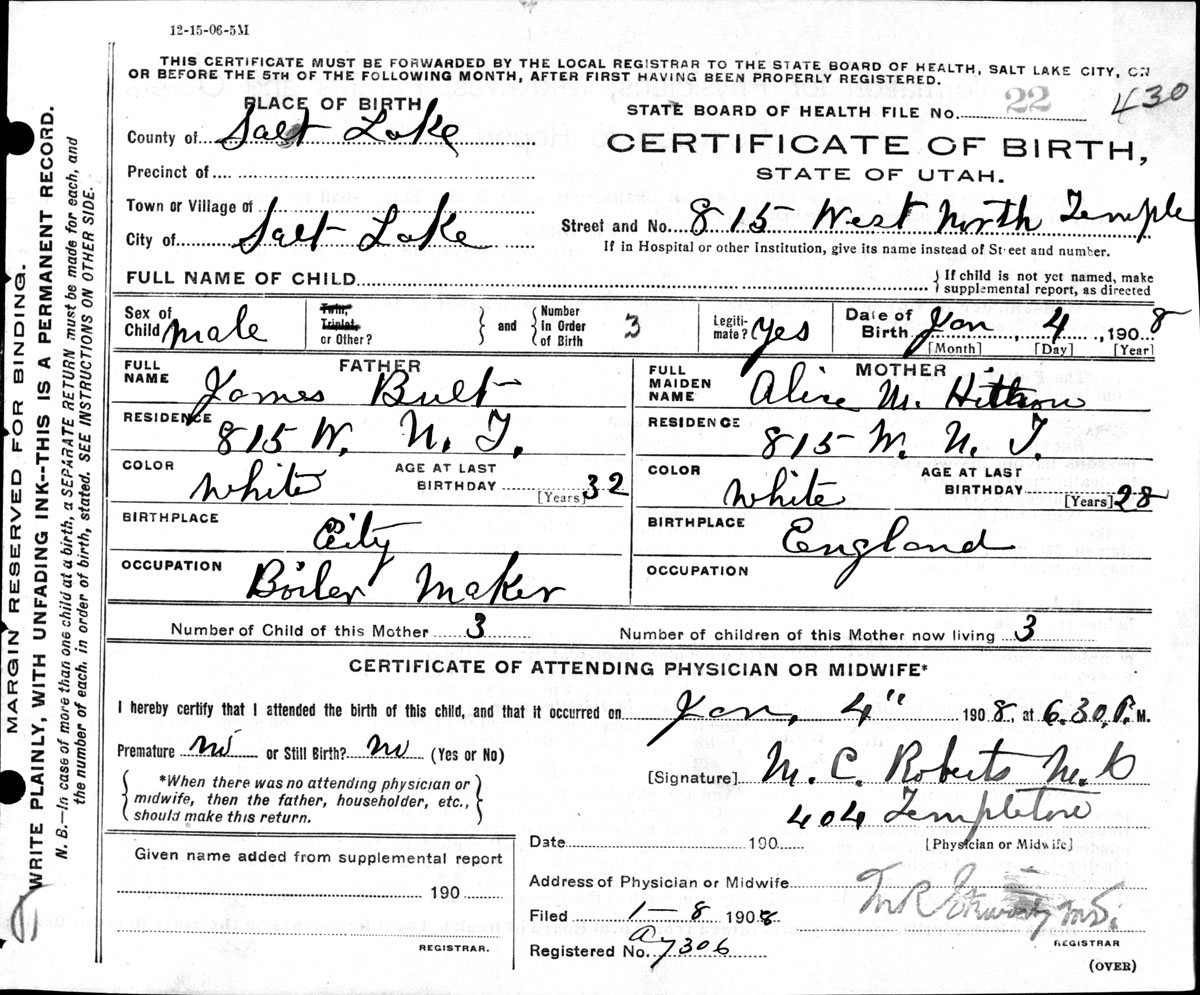 12-15-06-5M
THIS CERTIFICATE MUST BE FORWARDED BY THE LOCAL REGISTRAR TO THE STATE BOARD OF HEALTH, SALT LAKE CITY, ON
OR BEFORE THE 5TH OF THE FOLLOWING MONTH, AFTER FIRST HAVING BEEN PROPERLY REGISTERED.
PLACE OF BIRTH
County of Salt Lake
Precinct of
Town or Village of
City of Salt Lake
STATE BOARD OF HEALTH FILE No. 22 430
CERTIFICATE OF BIRTH,
STATE OF UTAH.
Street and No. 815 West North Temple
If in Hospital or other Institution, give its name instead of Street and number.
FULL NAME OF CHILD
If child is not yet named, make
supplemental report, as directed
Sex of
Child male
Twin,
Triplet,
or Other?
and
Number
In Order
of Birth 3
Legiti-
mate? Yes
Date of
Birth Jan 4, 1908
[Month] [Day] [Year]
FATHER
FULL
NAME James Bult
RESIDENCE 815 W. N. T.
COLOR White
AGE AT LAST
BIRTHDAY 32
[Years]
BIRTHPLACE City
OCCUPATION Boiler Maker
MOTHER
FULL
MAIDEN
NAME Alice M.
RESIDENCE 815 W. N. T.
COLOR White
AGE AT LAST
BIRTHDAY 28
[Years]
BIRTHPLACE England
OCCUPATION
Number of Child of this Mother 3
Number of children of this Mother now living 3
CERTIFICATE OF ATTENDING PHYSICIAN OR MIDWIFE*
I hereby certify that I attended the birth of this child, and that it occurred on Jan. 4" 1908, at 6.30 P. M.
Premature no or Still Birth? no (Yes or No)
*When there was no attending physician or
midwife, then the father, householder, etc.,
should make this return.
[Signature] M. C. Roberts M.D
404 Templeton
[Physician or Midwife]
Date 190
Given name added from supplemental report
190
REGISTRAR.
Address of Physician or Midwife
Filed 1-8 1908
Registered No. a7306
M.D.
REGISTRAR
(OVER)
MARGIN RESERVED FOR BINDING.
WRITE PLAINLY, WITH UNFADING INK--THIS IS A PERMANENT RECORD.
N. B.—In case of more than one child at a birth, a SEPARATE RETURN must be made for each, and
the number of each, in order of birth, stated. SEE INSTRUCTIONS ON OTHER SIDE.